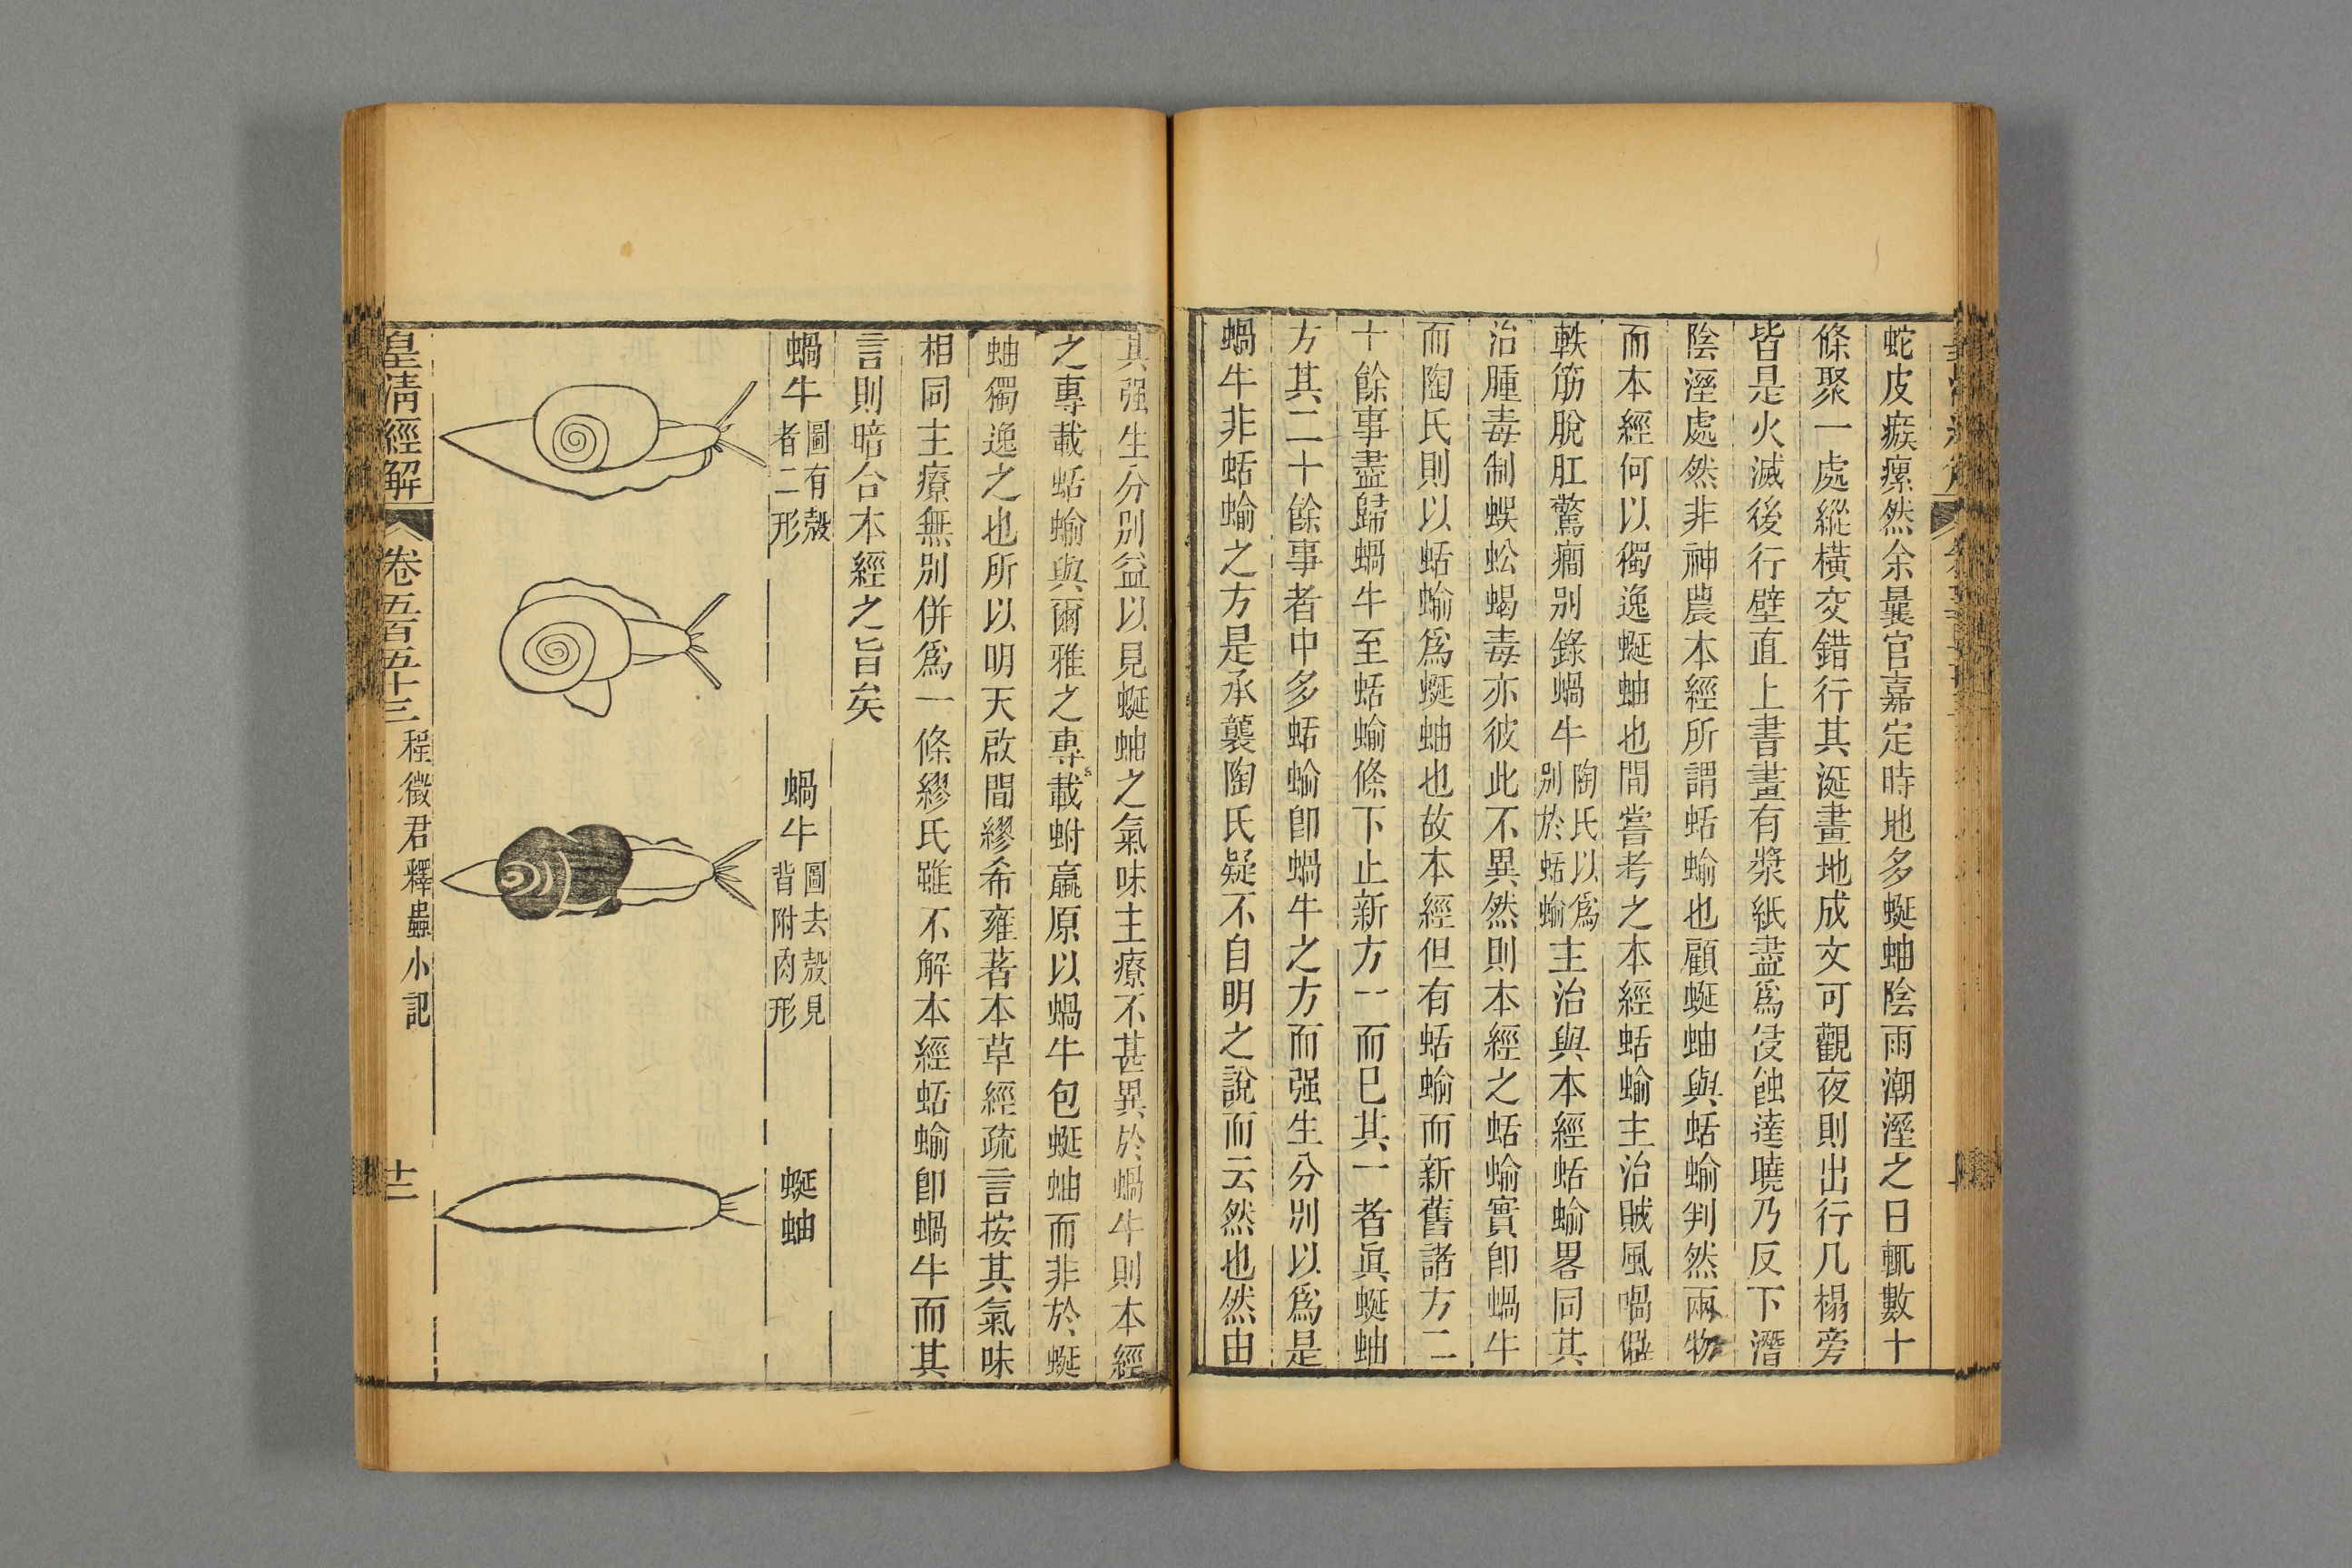 蛇皮瘊瘰然余曩官嘉定時地多蜒蚰陰雨潮溼之日輒數十
條聚一處縱橫交錯行其涎畫地成文可觀夜則出行几榻旁
皆是火滅後行壁直上書畫有漿紙盡爲侵蝕達曉乃反下潛
陰溼處然非神農本經所謂蛞蝓也顧蜒蚰與蛞蝓判然兩物
而本經何以獨逸蜒蚰也間嘗考之本經蛞蝓主治賊風喎僻
軼筋脫肛驚癎別錄蝸牛陶氏以爲別於蛞蝓主治與本經蛞蝓畧同其
治腫毒制蜈蚣蝎毒亦彼此不異然則本經之蛞蝓實卽蝸牛
而陶氏則以蛞蝓爲蜒蚰也故本經但有蛞蝓而新舊諸方二
十餘事盡歸蝸牛至蛞蝓條下止新方一而已其一者眞蜒蚰
方其二十餘事者中多蛞蝓卽蝸牛之方而强生分別以爲是
蝸牛非蛞蝓之方是承襲陶氏疑不自明之說而云然也然由
其强生分別益以見蜒蚰之氣味主療不甚異於蝸牛則本經
之專載蛞蝓與爾雅之專載蚹蠃原以蝸牛包蜒蚰而非於蜒
蚰獨逸之也所以明天啟間繆希雍著本草經疏言按其氣味
相同主療無別併爲一條繆氏雖不解本經蛞蝓卽蝸牛而其
言則暗合本經之旨矣
蝸牛圖有殼者二形
蝸牛圖去殼見背附肉形
蜒蚰
皇淸經解
卷五百五十三
程徵君釋蟲小記
十二